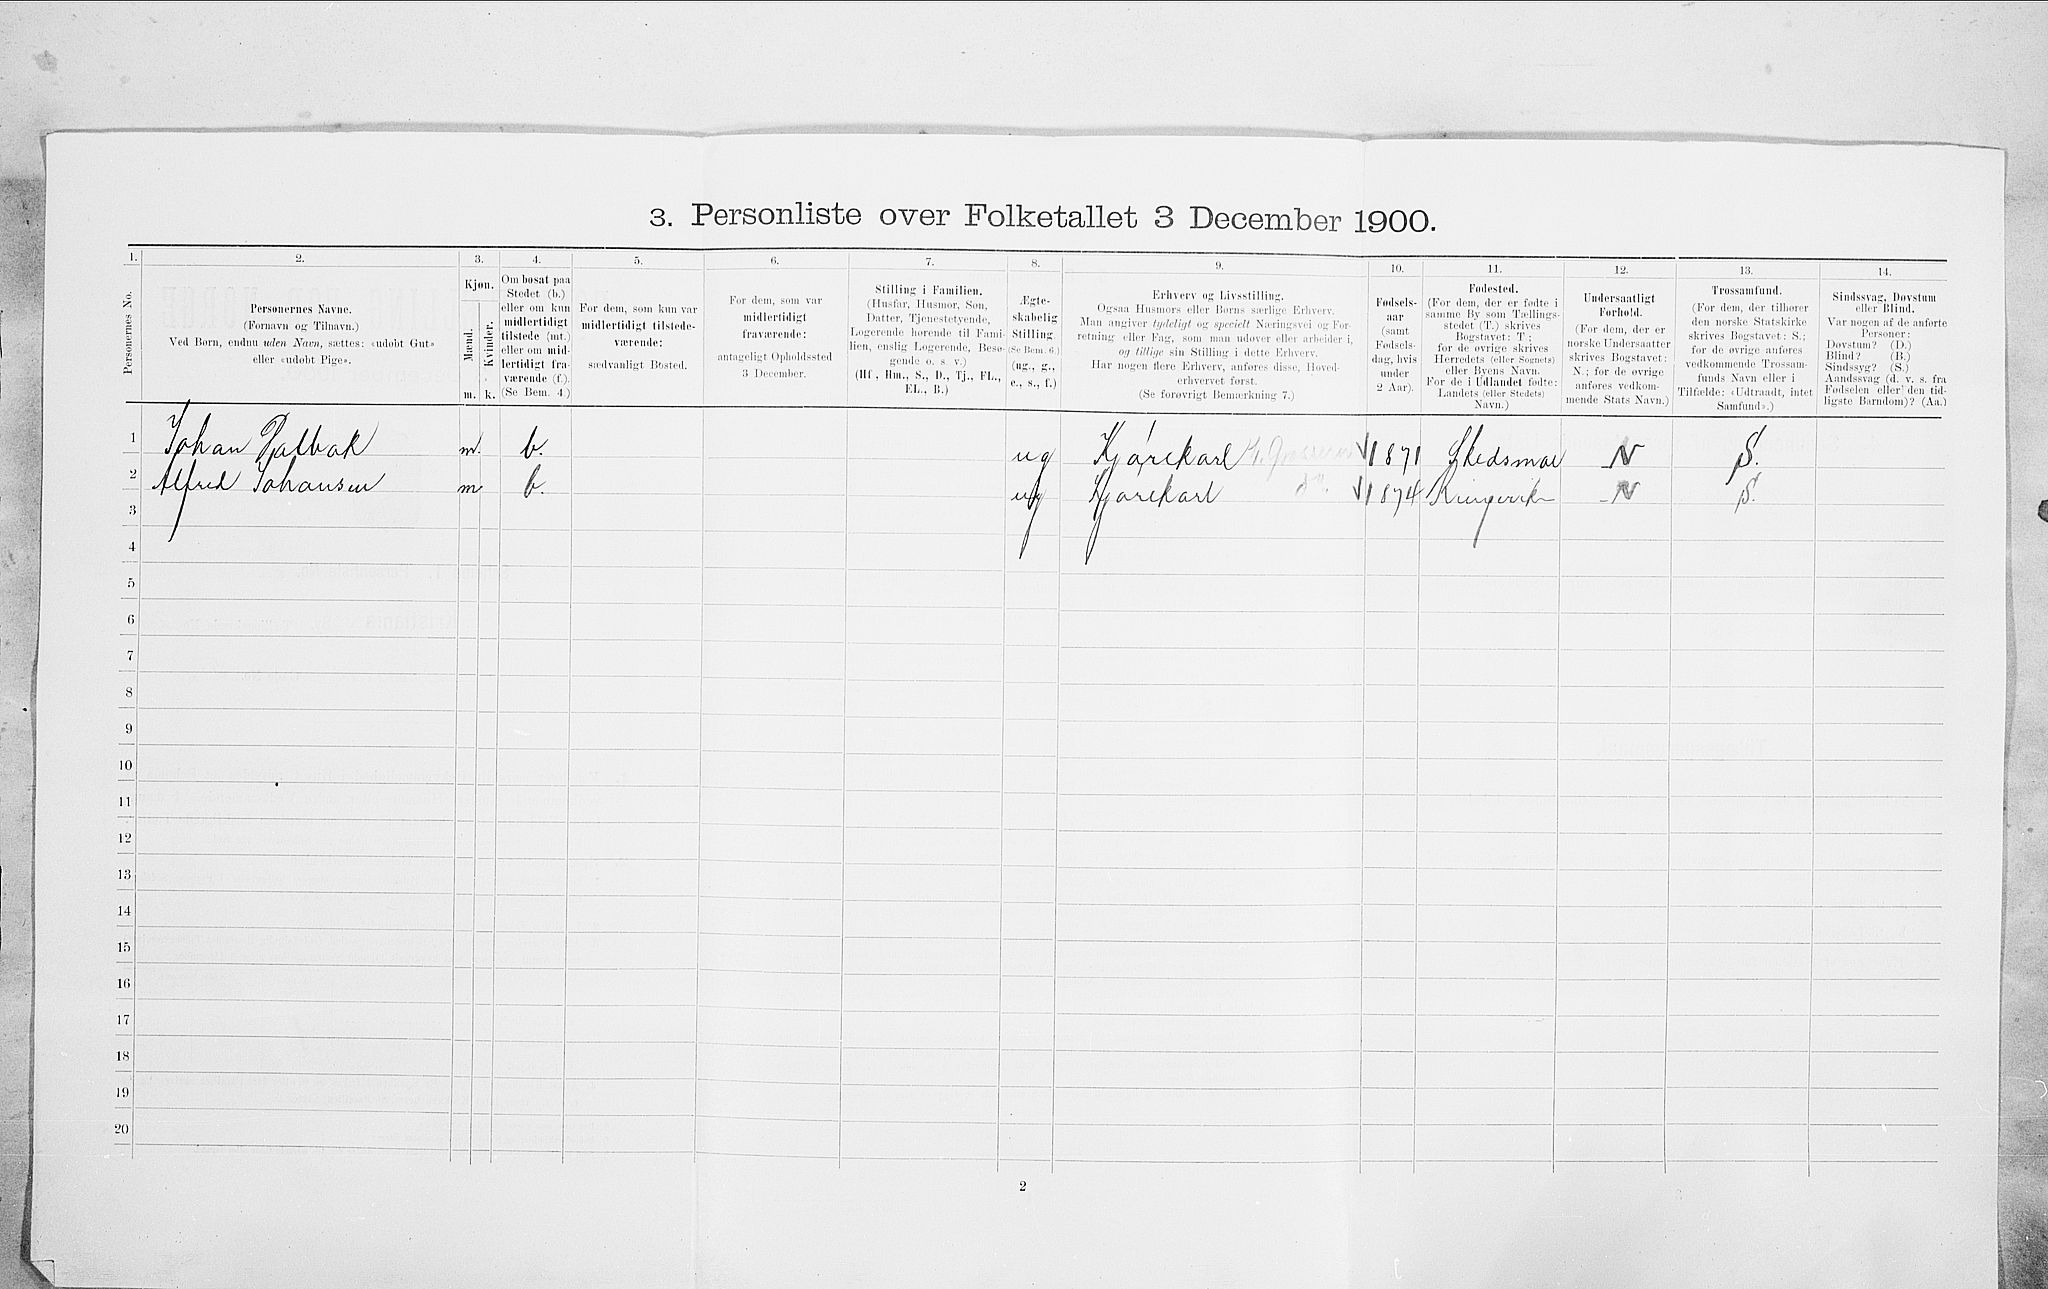 3. Personliste over Folketallet 3 December 1900.
1. 2. 3. 4. 5. 6. 7. 8. 9. 10. 11. 12. 13. 14.
Personernes No.
Personernes Navne.
(Fornavn og Tilnavn.)
Ved Børn, endnu uden Navn, sættes: «udøbt Gut»
eller «udøbt Pige».
Kjøn.
Mænd.
Kvinder.
m. k.
Om bosat paa
Stedet (b.)
eller om kun
midlertidigt
tilstede (mt.)
eller om mid-
lertidigt fra-
værende (f.).
(Se Bem. 4.)
For dem, som kun var
midlertidigt tilstede-
værende:
sædvanligt Bosted.
For dem, som var
midlertidigt
fraværende:
antageligt Opholdssted
3 December.
Stilling i Familien.
(Husfar, Husmor, Søn,
Datter, Tjenestetyende,
Logerende hørende til Fami-
lien, enslig Logerende, Besø-
gende o. s. v.)
(Hf., Hm., S., D., Tj., FL.,
EL., B.)
Ægte-
skabelig
Stilling.
(Se Bem. 6.)
(ug., g.,
e., s., f.)
Erhverv og Livsstilling.
Ogsaa Husmors eller Børns særlige Erhverv.
Man angiver tydeligt og specielt Næringsvei og For-
retning eller Fag, som man udøver eller arbeider i,
og tillige sin Stilling i dette Erhverv.
Har nogen flere Erhverv, anføres disse, Hoved-
erhvervet først.
(Se forøvrigt Bemærkning 7.)
Fødsels-
aar
(samt
Fødsels-
dag, hvis
under
2 Aar).
Fødested.
(For dem, der er fødte i
samme By som Tællings-
stedet (T.) skrives
Bogstavet: T.;
for de øvrige skrives
Herredets (eller Sognets)
eller Byens Navn.
For de i Udlandet fødte:
Landets (eller Stedets)
Navn.)
Undersaatligt
Forhold.
(For dem, der er
norske Undersaatter
skrives Bogstavet:
N.; for de øvrige
anføres vedkom-
mende Stats Navn.)
Trossamfund.
(For dem, der tilhører
den norske Statskirke
skrives Bogstavet: S.;
for de øvrige anføres
vedkommende Trossam-
funds Navn eller i
Tilfælde: «Udtraadt, intet
Samfund».)
Sindssvag, Døvstum
eller Blind.
Var nogen af de anførte
Personer:
Døvstum? (D.)
Blind? (B.)
Sindssyg? (S.)
Aandssvag (d. v. s. fra
Fødselen eller den tid-
ligste Barndom)? (Aa.)
1 Johan Dalbak m. b. ug Kjørekarl 1871 Skedsmoe N S.
2 Alfred Johansen m b. ug Kjørekarl do. 1874 Ringerik N S.
3
4
5
6
7
8
9
10
11
12
13
14
15
16
17
18
19
20
2